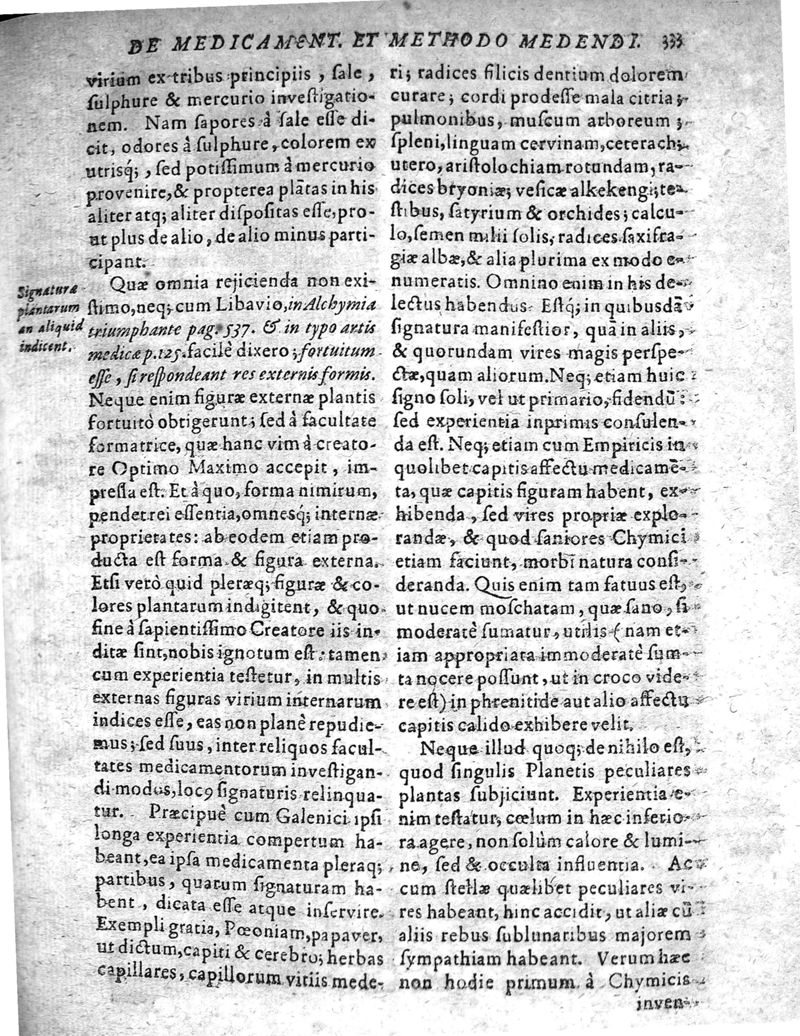 DE MEDICAMENT. ET METHODO MEDENDI. 333
virium ex tribus principiis, sale,
sulphure & mercurio investigatio-
nem. Nam sapores à sale esse di-
cit, odores à sulphure, colorem ex
utrisq;, sed potissimum à mercurio
provenire, & propterea plātas in his
aliter atq; aliter dispositas esse, pro-
ut plus de alio, de alio minus parti-
cipant.
Signaturæ
plantarum
an aliquid
indicent.
Quæ omnia rejicienda non exi-
stimo, neq; cum Libavio, in Alchymia
triumphante pag. 537. & in typo artis
medicæ p. 125. facilè dixero; fortuitum
esse, si respondeant res externis formis.
Neque enim figuræ externæ plantis
fortuitò obtigerunt; sed à facultate
formatrice, quæ hanc vim à creato-
re Optimo Maximo accepit, im-
pressa est. Et à quo, forma nimirum,
pendet rei essentia, omnesq; internæ
proprietates: ab eodem etiam pro-
ducta est forma & figura externa.
Etsi verò quid pleræq; figuræ & co-
lores plantarum indigitent, & quo
fine à sapientissimo Creatore iis in-
ditæ sint, nobis ignotum est: tamen
cum experientia testetur, in multis
externas figuras virium internarum
indices esse, eas non planè repudie-
mus; sed suus, inter reliquos facul-
tates medicamentorum investigan-
di modos, locꝰ signaturis relinqua-
tur. Præcipuè cum Galenici ipsi
longa experientia compertum ha-
beant, ea ipsa medicamenta pleraq;
partibus, quarum signaturam ha-
bent, dicata esse atque inservire.
Exempli gratia, Pœoniam, papaver,
ut dictum, capiti & cerebro; herbas
capillares, capillorum vitiis mede-
ri; radices filicis dentium dolorem
curare; cordi prodesse mala citria;
pulmonibus, muscum arboreum;
spleni, linguam cervinam, ceterach;
utero, aristolochiam rotundam, ra-
dices bryoniæ; vesicæ alkekengi; te-
stibus, satyrium & orchides; calcu-
lo, semen milii solis, radices saxifra-
giæ albæ, & alia plurima ex modo e-
numeratis. Omnino enim in his de-
lectus habendus. Estq; in quibusdā
signatura manifestior, quā in aliis,
& quorundam vires magis perspe-
ctæ, quam aliorum. Neq; etiam huic
signo soli, vel ut primario, fidendū:
sed experientia inprimis consulen-
da est. Neq; etiam cum Empiricis in
quolibet capitis affectu medicamē-
ta, quæ capitis figuram habent, ex-
hibenda, sed vires propriæ explo-
randæ, & quod saniores Chymici
etiam faciunt, morbi natura consi-
deranda. Quis enim tam fatuus est,
ut nucem moschatam, quæ sano, si
moderatè sumatur, utilis (nam et-
iam appropriata immoderatè sum-
ta nocere possunt, ut in croco vide-
re est) in phrenitide aut alio affectu
capitis calido exhibere velit.
Neque illud quoq; de nihilo est,
quod singulis Planetis peculiares
plantas subjiciunt. Experientia e-
nim testatur, cœlum in hæc inferio-
ra agere, non solùm calore & lumi-
ne, sed & occulta influentia. Ac
cum stellæ quælibet peculiares vi-
res habeant, hinc accidit, ut aliæ cū
aliis rebus sublunaribus majorem
sympathiam habeant. Verum hæc
non hodie primum à Chymicis
inven-